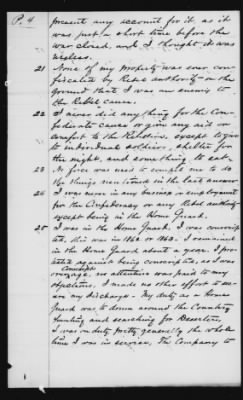 P. 4
present any account for it, as it
was just a short time before the
war closed, and I thought it was
useless.
21 None of my property was ever con-
fiscated by Rebel authority on the
ground that I was an enemy to
the Rebel cause.
22 I never did any thing for the Con-
federate cause or give any aid or
comfort to the Rebellion, except to give
to individual soldiers, shelter for
the night, and something to eat.
23 No force was used to compel me to do
the things mentioned in the last answer
24 I was never in any business or employment
for the Confederacy or any Rebel authority
except being in the Home Guard.
25 I was in the Home Guard. I was conscrip-
ted, this was in 1862 or 1863. I remained
in the Home Guard about a year. I pro-
tested against being conscripted, as I was
over age, no attention was paid to my
Conscript
objections, I made no other effort to se-
cure my discharge - My duty as a Home
Guard was to down around the Country
hunting and searching for Deserters.
I was on duty pretty generally the whole
time I was in service. The Company to